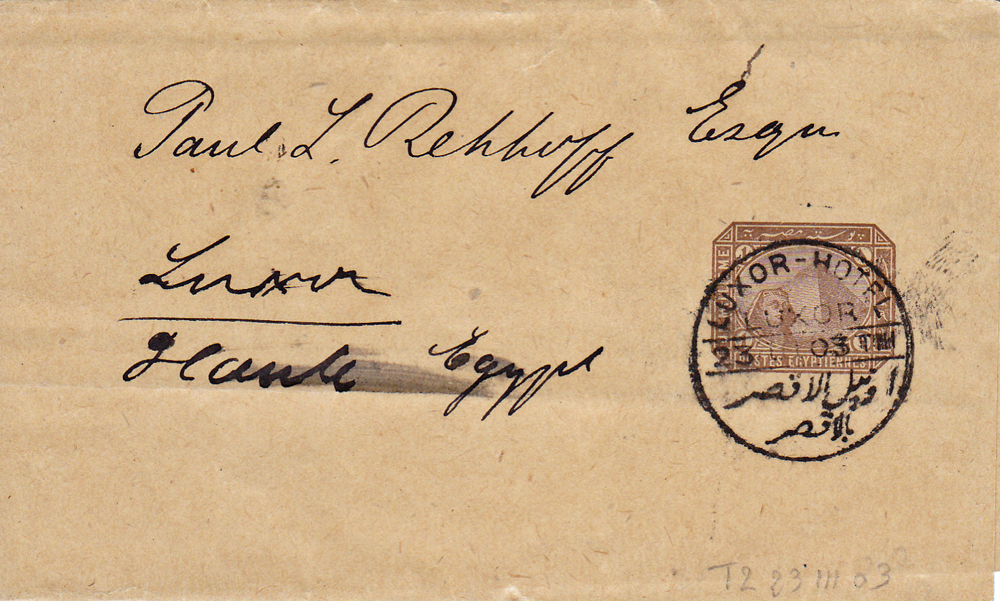 Paul L. Rehhoff Esqu
Luxor
Haute Egypt
بوستة مصرية
LUXOR-HOTEL
LUXOR
03
POSTES EGYPTIENNES
اوتيل الاقصر
بالاقصر
T2 23 III 03